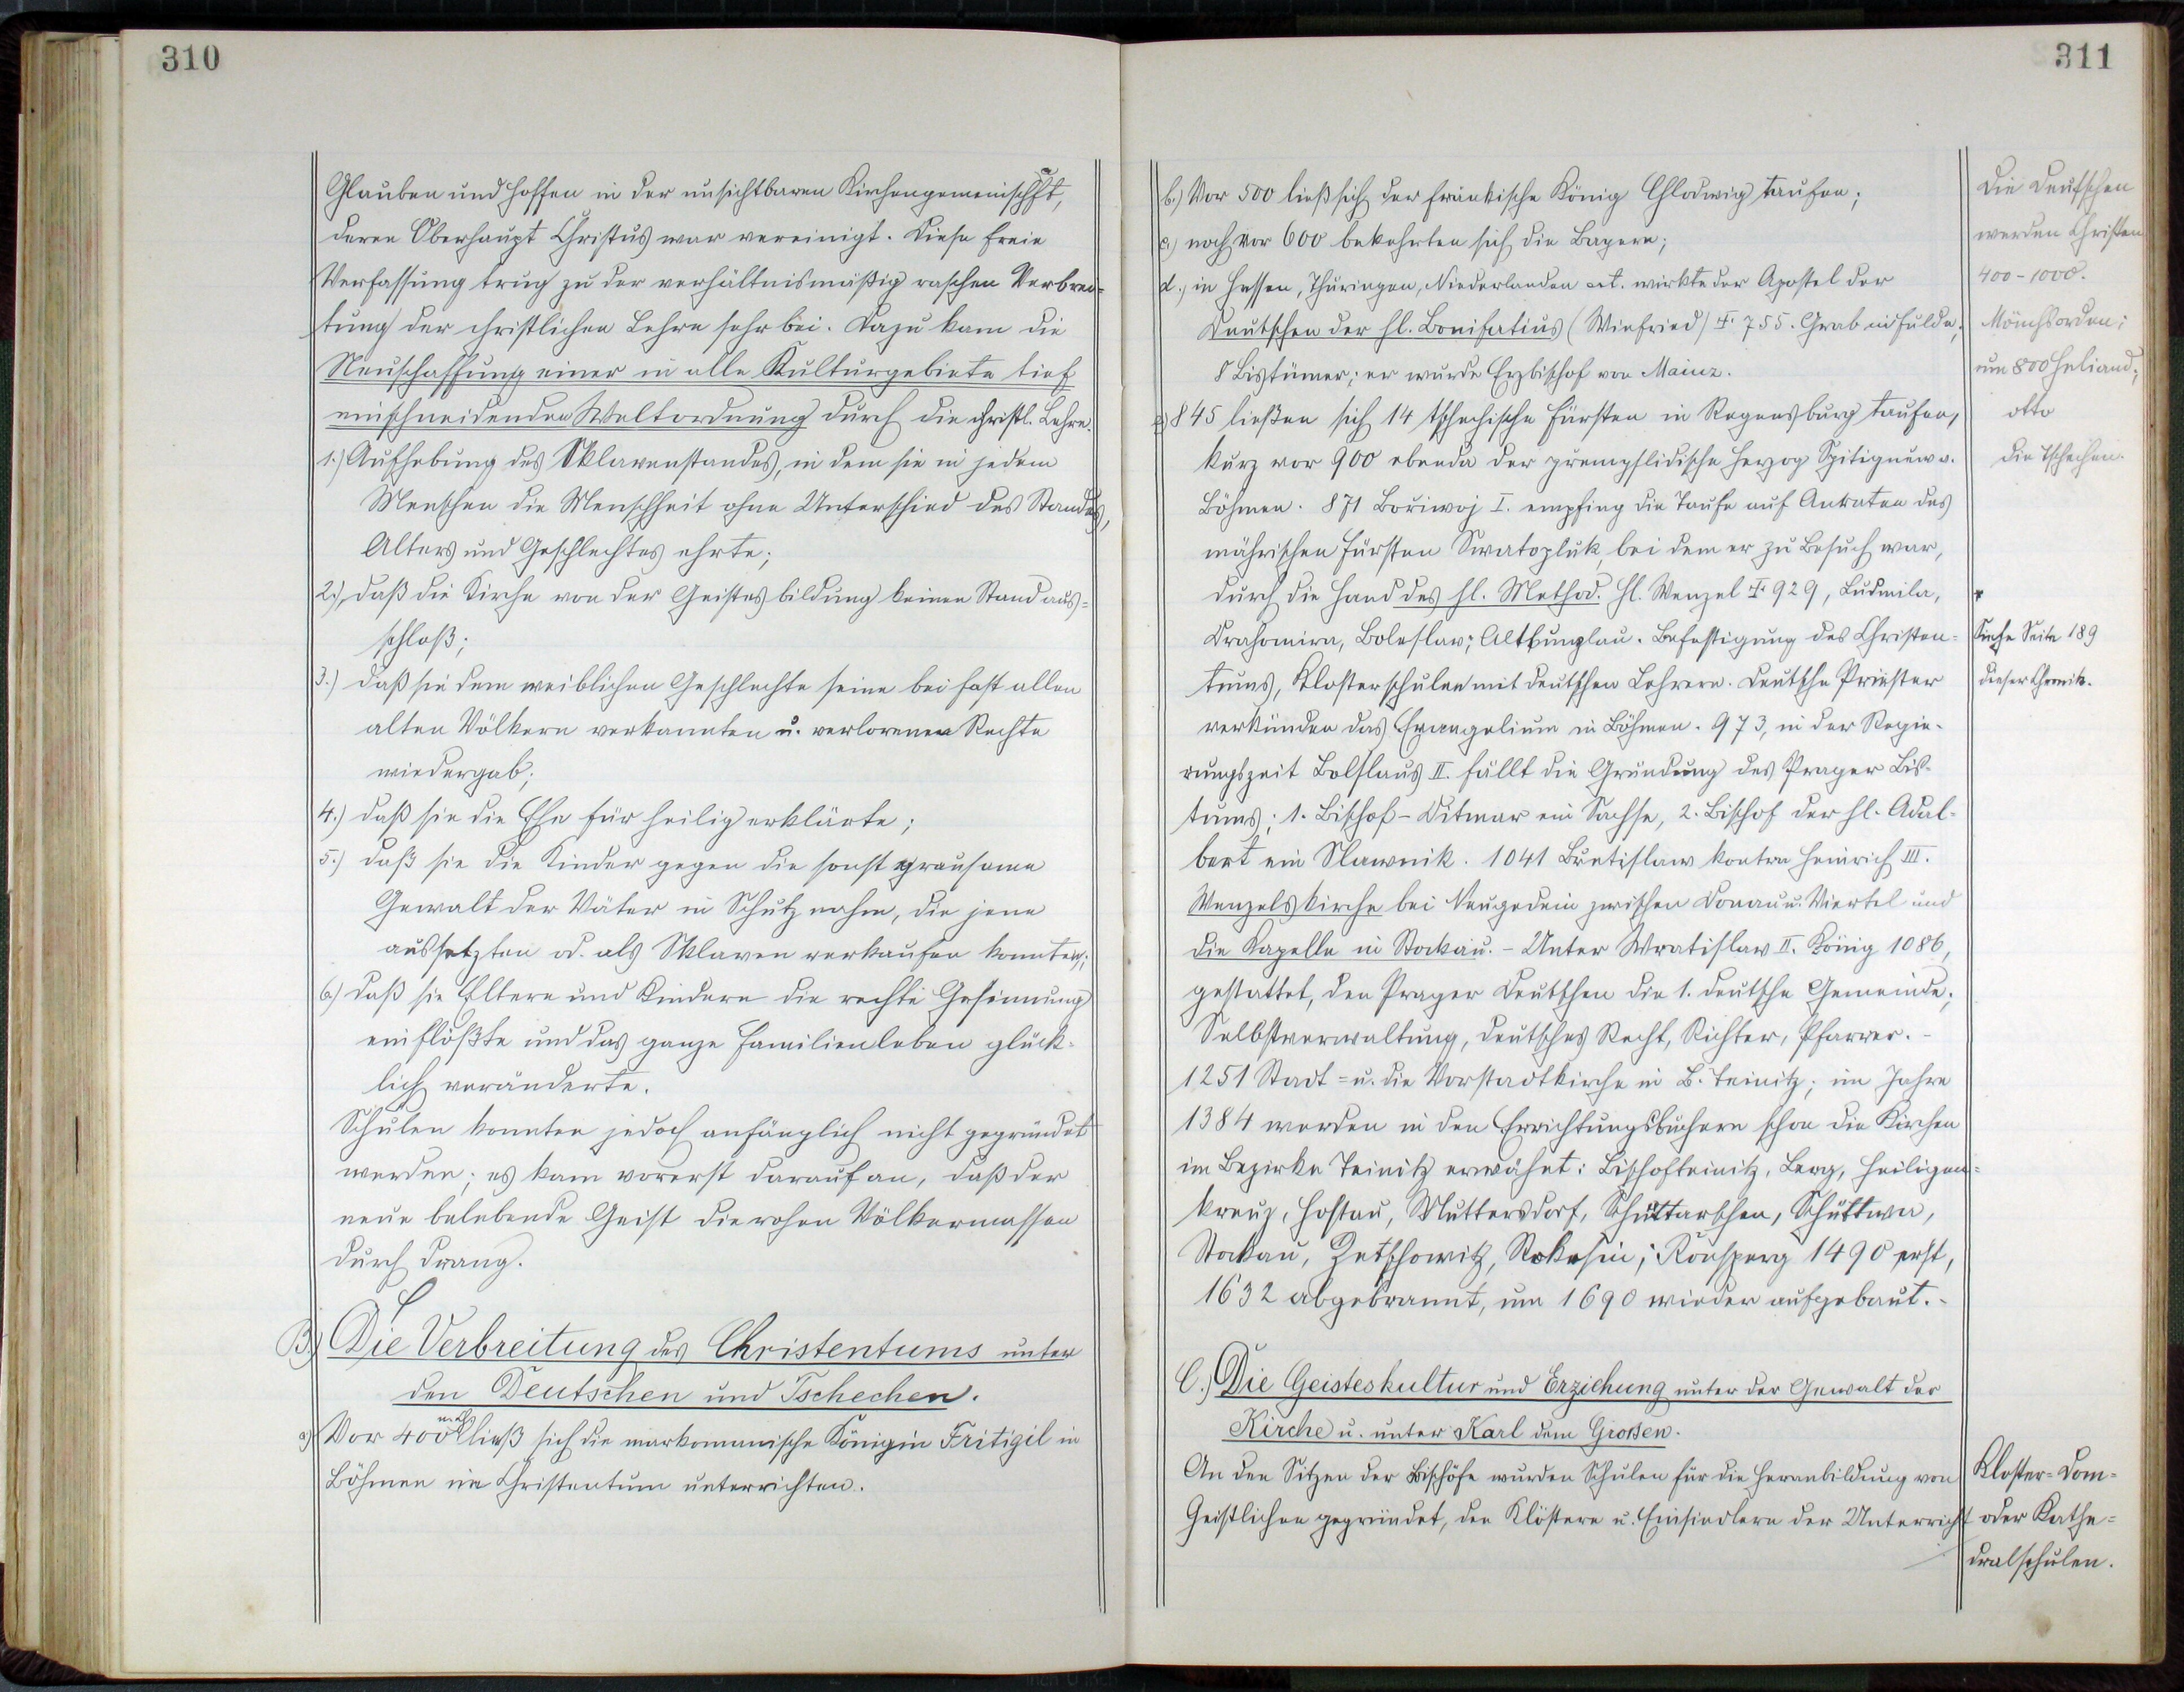 310
Glauben und Hoffen in der unsichtbaren Kirchengemeinschaft,
deren Oberhaupt Christus war vereinigt. Diese freie
Verfassung trug zu der verhältnismäßig raschen Verbrei-
tung der christlichen Lehre sehr bei. Dazu kam die
Neuschaffung einer in alle Kulturgebiete tief
einschneidenden Weltordnung durch die christl. Lehre.
1.) Aufhebung des Sklavenstandes, in dem sie in jedem
Menschen die Menschheit ohne Unterschied des Standes,
Alters und Geschlechtes ehrte;
2.) daß die Kirche von der Geistesbildung keinen Stand aus-
schloß;
3.) daß sie dem weiblichen Geschlechte seine bei fast allen
alten Völkern verkannten u. verlorenen Rechte
wiedergab;
4.) daß sie die Ehe für heilig erklärte;
5.) daß sie die Kinder gegen die sonst grausame
Gewalt der Väter in Schutz nahm, die jene
aussetzten od. als Sklaven verkaufen konnten;
6.) daß sie Eltern und Kindern die rechte Gesinnung
einflößte und das ganze Familienleben glück-
lich veränderte.
Schulen konnten jedoch anfänglich nicht gegründet
werden; es kam vorerst darauf an, daß der
neue belebende Geist die rohen Völkermassen
durch drang.
B.) Die Verbreitung des Christentums unter
den Deutschen und Tschechen.
a) Vor 400 n. Ch. ließ sich die markomanische Königin Fritigil in
Böhmen im Christentum unterrichten.
311
b.) Vor 500 ließ sich der fränkische König Chlodwig taufen;
c.) noch vor 600 bekehrten sich die Bayern;
d.) in Hessen, Thüringen, Niederlanden ect. wirkte der Apostel der
Deutschen der hl. Bonifatius (Winfried) † 755. Grab in Fulda;
8 Bistümer; er wurde Erzbischof von Mainz.
e) 845 ließen sich 14 tschechische Fürsten in Regensburg taufen,
kurz vor 900 ebenda der přemyslidische Herzog Spitignew v.
Böhmen. 871 Bořiwoj I. empfing die Taufe auf Anraten des
mährischen Fürsten Swatopluk, bei dem er zu Besuch war,
durch die Hand des hl. Method. Hl. Wenzel † 929, Ludmila,
Drahomira, Boleslav; Altbunzlau. Befestigung des Christen-
tums, Klosterschulen mit deutschen Lehrern. Deutsche Priester
verkünden das Evangelium in Böhmen. 973, in der Regie-
rungszeit Bolslaus II. fällt die Gründung des Prager Bis-
tums; 1. Bischof - Ditmar ein Sachse, 2. Bischof der hl. Adal-
bert ein Slawnik. 1041 Bretislaw kontra Heinrich III.
Wenzelskirche bei Neugedein zwischen Donau u. Viertel und
die Kapelle in Stockau. - Unter Wratislaw II. König 1086,
gestattet, den Prager Deutschen die 1. deutsche Gemeinde;
Selbstverwaltung, deutsches Recht, Richter, Pfarrer. -
1251 Stadt= u. die Vorstadtkirche in B. Teinitz; im Jahre
1384 werden in den Errichtungsbüchern schon die Kirchen
im Bezirke Teinitz erwähnt: Bischofteinitz, Berg, Heiligen-
kreuz, Hostau, Muttersdorf, Schüttarschen, Schüttwa,
Stockau, Zetschowitz, Ronsperg 1490 erst,
1632 abgebrannt, um 1690 wieder aufgebaut. -
C.) Die Geisteskultur und Erziehung unter der Gewalt der
Kirche u. unter Karl dem Großen.
An den Sitzen der Bischöfe wurden Schulen für die Heranbildung von
Geistlichen gegründet, den Klöstern u. Einsiedlern der Unterricht
Die Deutschen
werden Christen
400-1000.
Mönchsorden;
um 800 Heliand;
otto
die Tschechen.
Siehe Seite 189
dieser Chronik.
Kloster= Dom=
oder Kathe=
dralschulen.